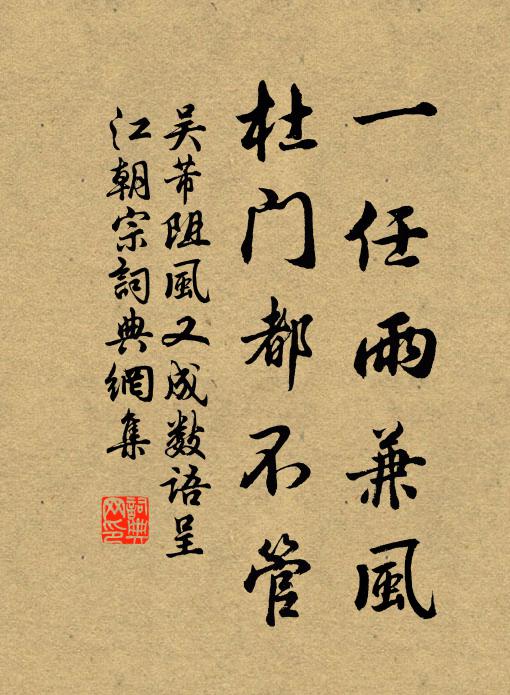 一任雨兼风
杜门都不管
吴芾阻風又成数语呈
江朝宗詞典網集
詞典网印